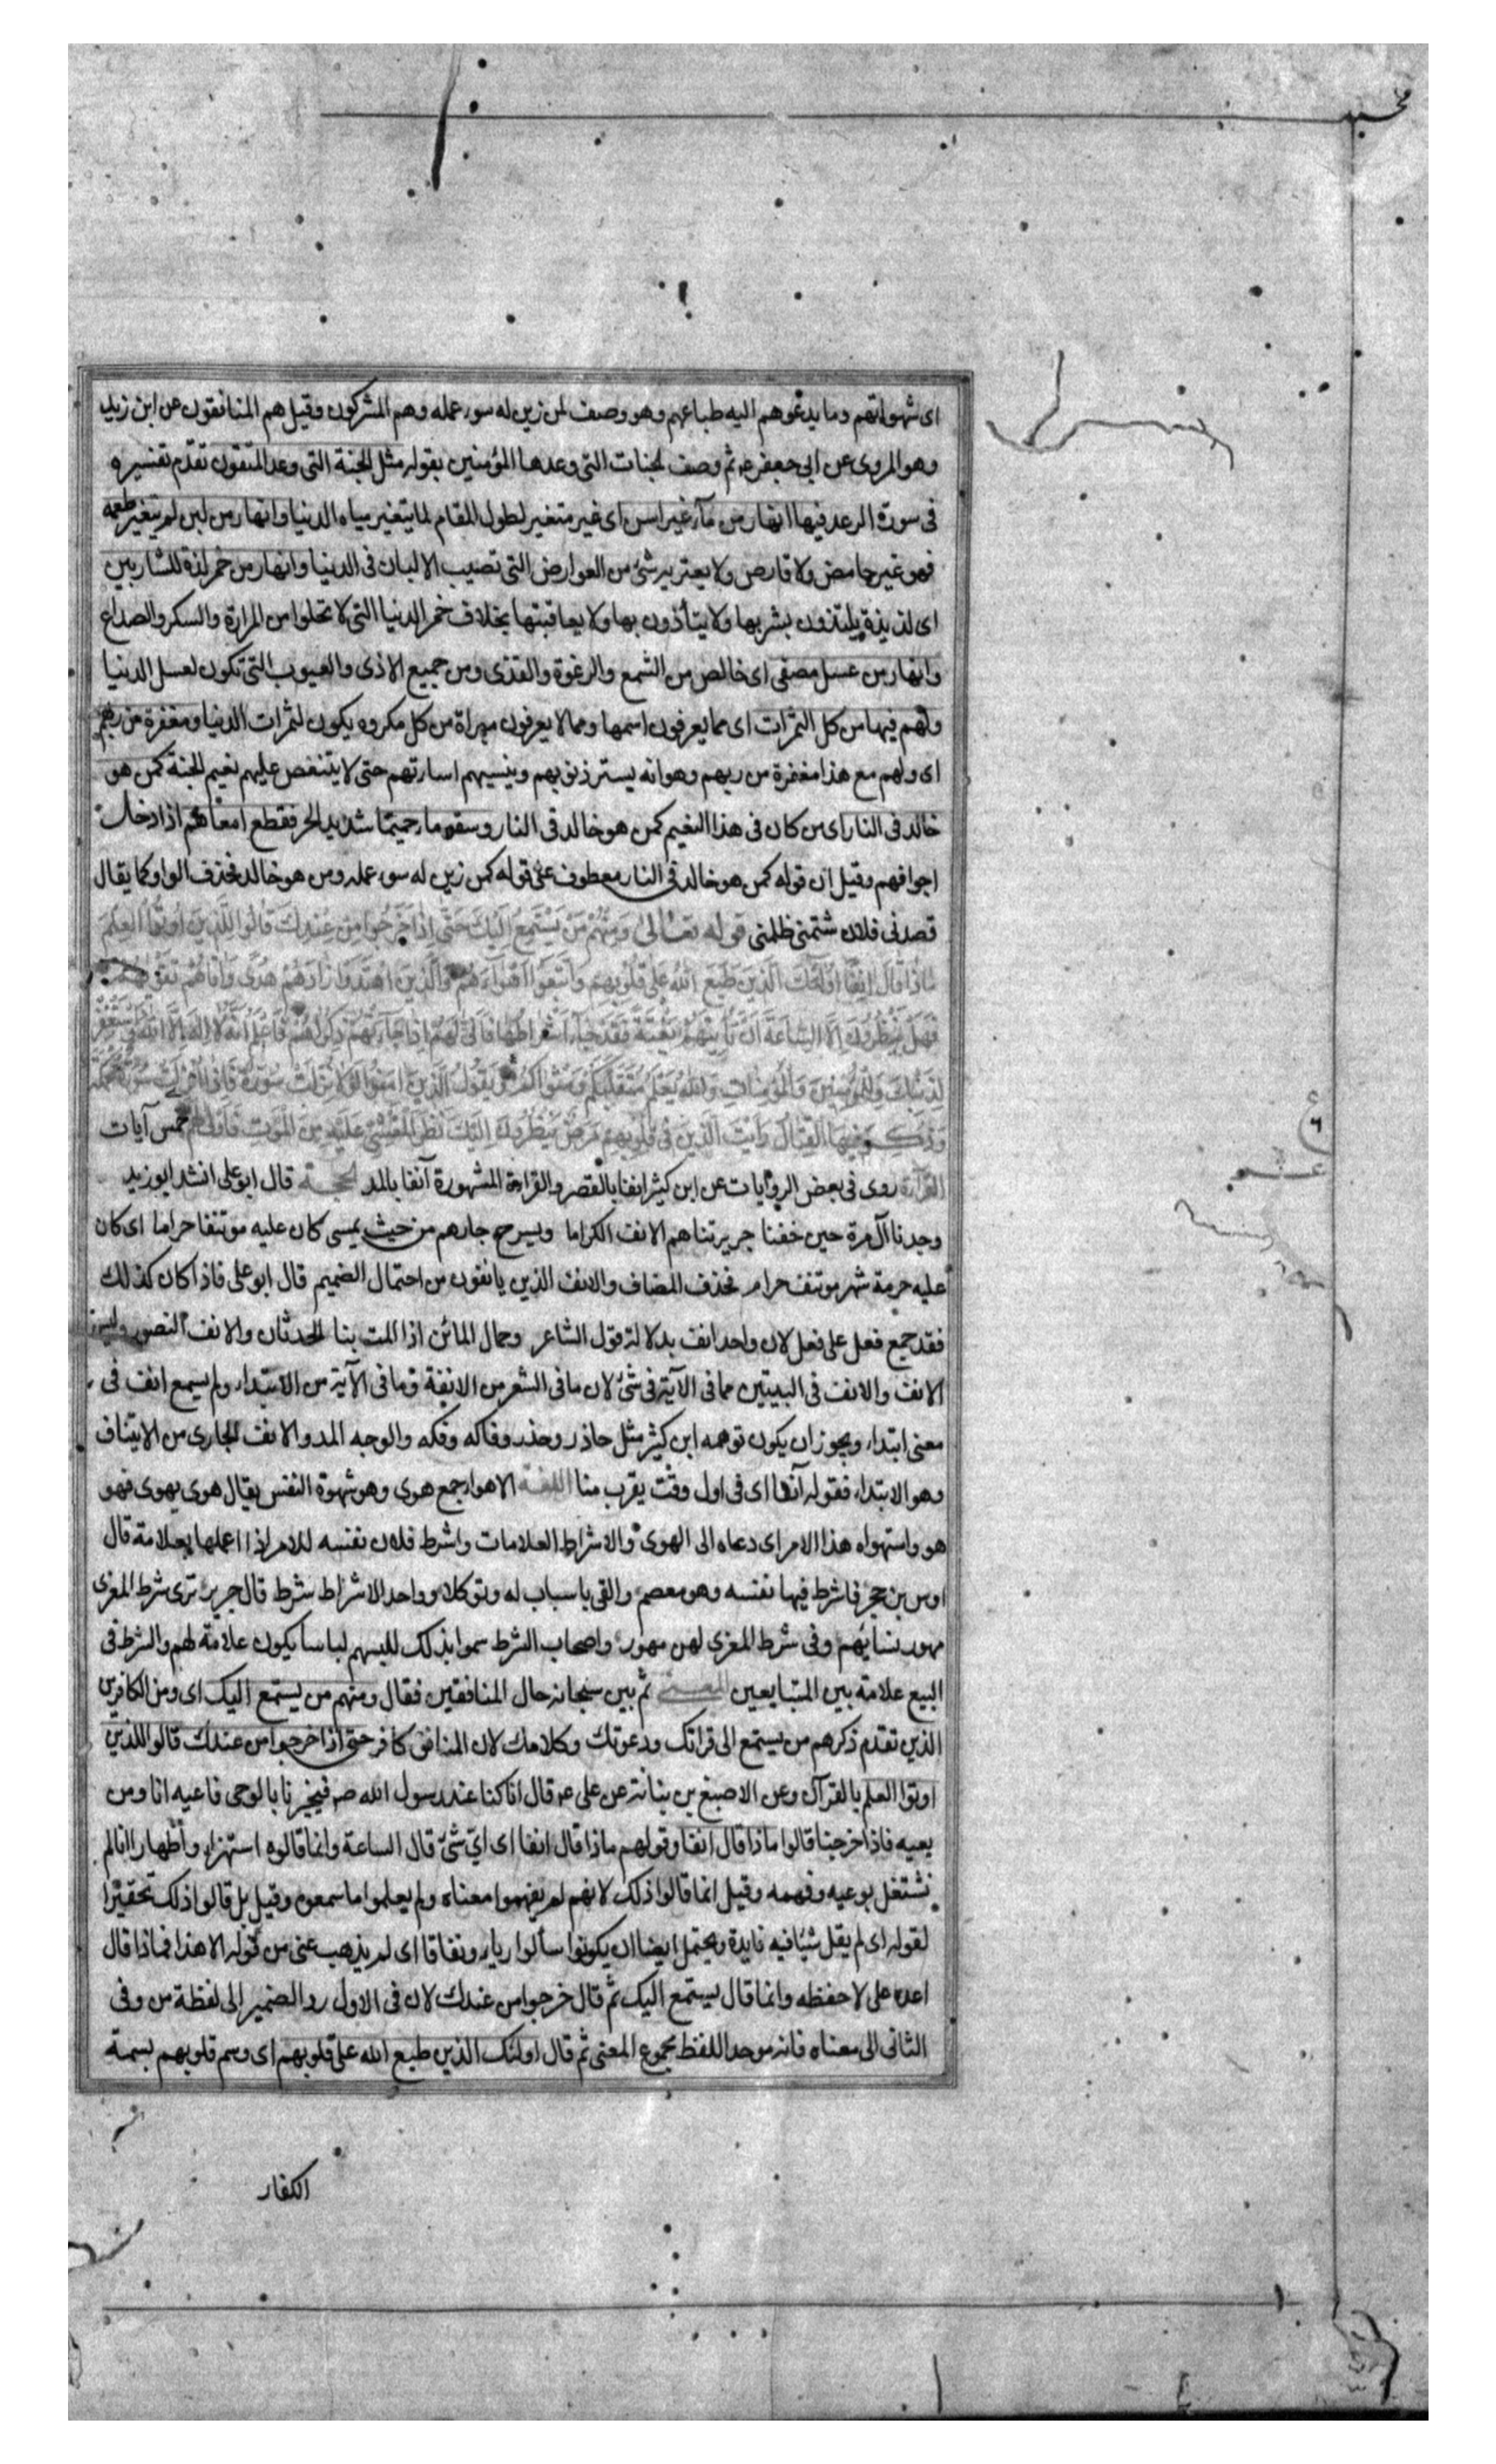 اى شهواتهم وما يدعوهم اليه طباعهم وهو وصف لمن زين له سوء عمله وهم المشركون وقيل هم المنافقون عن ابن زيد
وهو المروى عن ابى جعفر ع ثم وصف الجنات التى وعدها المؤمنين بقوله مثل الجنة التى وعد المتقون تقدم تفسيره
فى سورة الرعد فيها انهار من مآء غير اسن اى غير متغير لطول المقام كما يتغير مياه الدنيا وانهار من لبن لم يتغير طعمه
فهو غير حامض ولا قارص ولا يعتريه شئ من العوارض التى تصيب الالبان فى الدنيا وانهار من خمر لذة للشاربين
اى لذيذة يلتذون بشربها ولا يتأذون بها ولا بعاقبتها بخلاف خمر الدنيا التى لا تخلوا من المرارة والسكر والصداع
وانهار من عسل مصفى اى خالص من الشمع والرغوة والقذى ومن جميع الاذى والعيوب التى تكون لعسل الدنيا
ولهم فيها من كل الثمرات اى مما يعرفون اسمها ومما لا يعرفون مبراة من كل مكروه يكون لثمرات الدنيا ومغفرة من ربهم
اى ولهم مع هذا مغفرة من ربهم وهو انه يستر ذنوبهم وينسيهم اساءتهم حتى لا يتنغص عليهم نعيم الجنة كمن هو
خالد فى النار اى من كان فى هذا النعيم كمن هو خالد فى النار وسقوا ماء حميما شديد الحر فقطع امعاهم اذا دخلت
اجوافهم وقيل ان قوله كمن هو خالد فى النار معطوف على قوله كمن زين له سوء عمله ومن هو خالد فحذف الواو كما يقال
قصدنى فلان شتمنى ظلمنى قوله تعالى وَمِنْهُمْ مَنْ يَسْتَمِعُ اِلَيْكَ حَتّى اِذَا خَرَجُوا مِنْ عِنْدِكَ قَالُوا لِلَّذِينَ اُوتُوا الْعِلْمَ
مَاذَا قَالَ انِفًا اُولئِكَ الَّذِينَ طَبَعَ اللهُ عَلى قُلُوبِهِمْ وَاتَّبَعُوا اَهْوَآءَهُمْ وَالَّذِينَ اهْتَدَوْا زَادَهُمْ هُدًى وَاتَاهُمْ تَقْويهُمْ
فَهَلْ يَنْظُرُونَ اِلَّا السَّاعَةَ اَنْ تَأْتِيَهُمْ بَغْتَةً فَقَدْ جَآءَ اَشْرَاطُهَا فَاَنّى لَهُمْ اِذَا جَآءَتْهُمْ ذِكْريهُمْ فَاعْلَمْ اَنَّهُ لَا اِلهَ اِلَّا اللهُ وَاسْتَغْفِرْ
لِذَنْبِكَ وَلِلْمُؤْمِنِينَ وَالْمُؤْمِنَاتِ وَاللهُ يَعْلَمُ مُتَقَلَّبَكُمْ وَمَثْويكُمْ وَيَقُولُ الَّذِينَ امَنُوا لَوْلَا نُزِّلَتْ سُورَةٌ فَاِذَا اُنْزِلَتْ سُورَةٌ مُحْكَمَةٌ
وَذُكِرَ فِيهَا الْقِتَالُ رَاَيْتَ الَّذِينَ فِى قُلُوبِهِمْ مَرَضٌ يَنْظُرُونَ اِلَيْكَ نَظَرَ الْمَغْشِىِّ عَلَيْهِ مِنَ الْمَوْتِ فَاَوْلى لَهُمْ خمس آيات
القرآءة روى فى بعض الروايات عن ابن كثير انفا بالقصر والقراءة المشهورة آنفا بالمد الحجة قال ابو على انشد ابو زيد
وجدنا آل مرة حين خفنا جريرتنا هم الانف الكراما ويسرح جارهم من حيث يمسى كان عليه موتنفا حراما اى كان
عليه حرمة شهر موتنف حرام فحذف المضاف والانف الذين يانفون من احتمال الضيم قال ابو على فاذا كان كذلك
فقد جمع فعل على فعل لان واحد انف بدلالة قول الشاعر وحمال المائين اذا المت بنا الحدثان والانف النصور وليس
الانف والانف فى البيتين مما فى الآية فى شئ لان ما فى الشعر من الانفة وما فى الآية من الابتداء ولم يسمع انف فى
معنى ابتداء ويجوز ان يكون توهمه ابن كثير مثل حاذر وحذر وفاكه وفكه والوجه المد والانف الجارى من الايتناف
وهو الابتداء فقوله آنفا اى فى اول وقت يقرب منا اللغة الاهواء جمع هوى وهو شهوة النفس يقال هوى يهوى فهو
هو واستهواه هذا الامر اى دعاه الى الهوى والاشراط العلامات واشرط فلان نفسه للامر اذا اعلمها بعلامة قال
اوس بن حجر فاشرط فيها نفسه وهو معصم والقى باسباب له وتوكلا وواحد الاشراط شرط قال جرير ترى شرط المعزى
مهور نسائهم وفى شرط المعزى لهن مهور واصحاب الشرط سموا بذلك للبسهم لباسا يكون علامة لهم والشرط فى
البيع علامة بين المتبايعين المعنى ثم بين سبحانه حال المنافقين فقال ومنهم من يستمع اليك اى ومن الكافرين
الذين تقدم ذكرهم من يستمع الى قراتك ودعوتك وكلامك لان المنافق كافر حتى اذا خرجوا من عندك قالوا للذين
اوتوا العلم يا لقرآن وعن الاصبغ بن نباتة عن على ع قال انا كنا عند رسول الله ص فيخبرنا بالوحى فاعيه انا ومن
يعيه فاذا خرجنا قالوا ماذا قال انفا وقولهم ماذا قال انفا اى اىّ شئ قال الساعة وانما قالوه استهزاء واظهار انا لم
نشتغل بوعيه وفهمه وقيل انما قالوا ذلك لانهم لم يفهموا معناه ولم يعلموا ما سمعوه وقيل بل قالوا ذلك تحقيرا
لقوله اى لم يقل شيئا فيه فايدة ويحتمل ايضا ان يكونوا سألوا رياء ونفاقا اى لم يذهب عنى من قوله الا هذا فماذا قال
اعده على لاحفظه وانما قال يستمع اليك ثم قال خرجوا من عندك لان فى الاول رد الضمير الى لفظة من وفى
الثانى الى معناه فانه موحد اللفظ مجموع المعنى ثم قال اولئك الذين طبع الله على قلوبهم اى وسم قلوبهم بسمة
الكفار